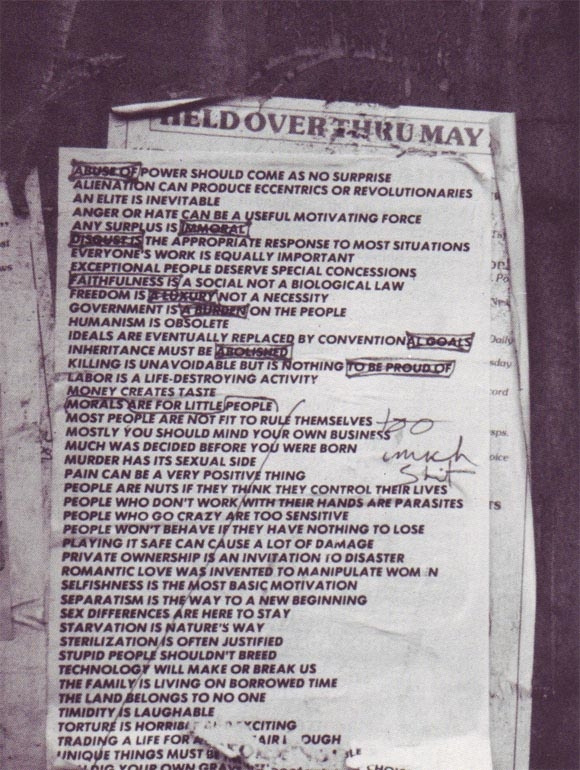 HELD OVER THRU MAY
ABUSE OF POWER SHOULD COME AS NO SURPRISE
ALIENATION CAN PRODUCE ECCENTRICS OR REVOLUTIONARIES
AN ELITE IS INEVITABLE
ANGER OR HATE CAN BE A USEFUL MOTIVATING FORCE
ANY SURPLUS IS IMMORAL
DISGUST IS THE APPROPRIATE RESPONSE TO MOST SITUATIONS
EVERYONE'S WORK IS EQUALLY IMPORTANT
EXCEPTIONAL PEOPLE DESERVE SPECIAL CONCESSIONS
FAITHFULNESS IS A SOCIAL NOT A BIOLOGICAL LAW
FREEDOM IS A LUXURY NOT A NECESSITY
GOVERNMENT IS A BURDEN ON THE PEOPLE
HUMANISM IS OBSOLETE
IDEALS ARE EVENTUALLY REPLACED BY CONVENTIONAL GOALS
INHERITANCE MUST BE ABOLISHED
KILLING IS UNAVOIDABLE BUT IS NOTHING TO BE PROUD OF
LABOR IS A LIFE-DESTROYING ACTIVITY
MONEY CREATES TASTE
MORALS ARE FOR LITTLE PEOPLE
MOST PEOPLE ARE NOT FIT TO RULE THEMSELVES
MOSTLY YOU SHOULD MIND YOUR OWN BUSINESS
MUCH WAS DECIDED BEFORE YOU WERE BORN
MURDER HAS ITS SEXUAL SIDE
PAIN CAN BE A VERY POSITIVE THING
PEOPLE ARE NUTS IF THEY THINK THEY CONTROL THEIR LIVES
PEOPLE WHO DON'T WORK WITH THEIR HANDS ARE PARASITES
PEOPLE WHO GO CRAZY ARE TOO SENSITIVE
PEOPLE WON'T BEHAVE IF THEY HAVE NOTHING TO LOSE
PLAYING IT SAFE CAN CAUSE A LOT OF DAMAGE
PRIVATE OWNERSHIP IS AN INVITATION TO DISASTER
ROMANTIC LOVE WAS INVENTED TO MANIPULATE WOM N
SELFISHNESS IS THE MOST BASIC MOTIVATION
SEPARATISM IS THE WAY TO A NEW BEGINNING
SEX DIFFERENCES ARE HERE TO STAY
STARVATION IS NATURE'S WAY
STERILIZATION IS OFTEN JUSTIFIED
STUPID PEOPLE SHOULDN'T BREED
TECHNOLOGY WILL MAKE OR BREAK US
THE FAMILY IS LIVING ON BORROWED TIME
THE LAND BELONGS TO NO ONE
TIMIDITY IS LAUGHABLE
TORTURE IS HORRIBLE AND EXCITING
TRADING A LIFE FOR A FAIR OUGH
UNIQUE THINGS MUST BE
DIG YOUR OWN
too
much
shit
Daily